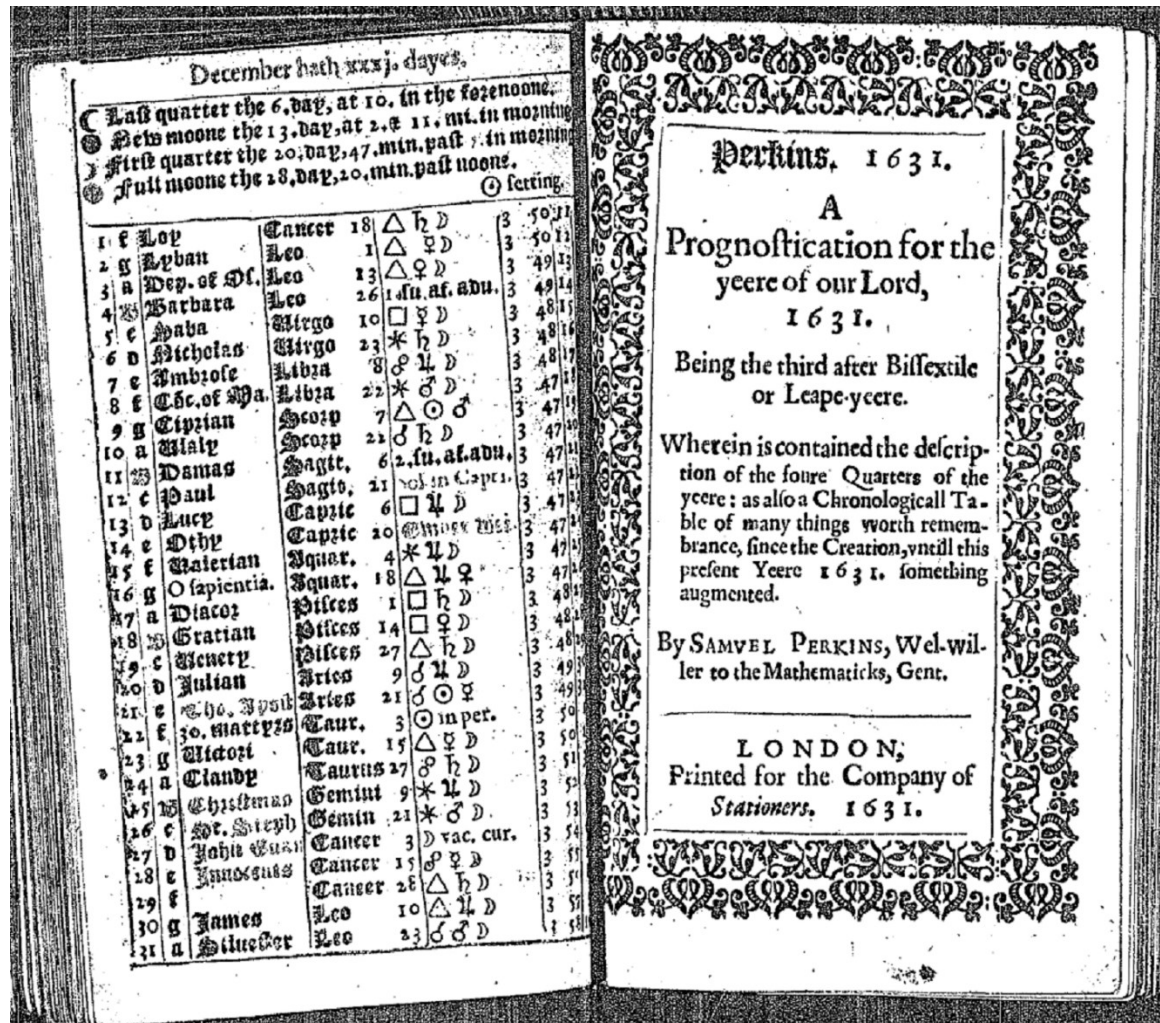 December hath xxxj. dayes.
☾ Last quarter the 6.day, at 10. in the forenoone.
New moone the 13.day, at 2.& 11. mi. in morning
☽ First quarter the 20.day, 47.min.past in morning
Full moone the 28.day, 20.min.past noone.
☉ setting.
1 f Loy Cancer 18 △ ♄ ☽ 3 50 11
2 g Lyban Leo 1 △ ☿ ☽ 3 50 12
3 a Dep. of Os. Leo 13 △ ♀ ☽ 3 49 13
4 Barbara Leo 26 1.su. af. adu. 3 49 14
5 c Saba Virgo 10 □ ☿ ☽ 3 48 15
6 d Nicholas Virgo 23 ⚹ ♄ ☽ 3 48 16
7 e Ambrose Libra 8 ☍ ♃ ☽ 3 48 17
8 f Cõc. of Ma. Libra 22 ⚹ ♂ ☽ 3 47
9 g Ciprian Scorp 7 △ ☉ ♂ 3 47
10 a Scorp 22 ☌ ♄ ☽ 3 47
11 Damas Sagit. 6 2.su.af.adu. 3 47
12 c Paul Sagit. 21 sol in Capri. 3 47
13 d Lucy Capric 6 □ ♃ ☽ 3 47
14 e Othy Capric 20 Ember 3 47
15 f Valerian Aquar. 4 ⚹ ♃ ☽ 3 47
16 g O sapientia. Aquar. 18 △ ♃ ♀ 3 47
17 a Pisces 1 □ ♄ ☽ 3 48
18 Gratian Pisces 14 □ ♀ ☽ 3 48
19 c Venery Pisces 27 △ ♄ ☽ 3 48
20 d Julian Aries 9 ☌ ♃ ☽ 3 49
21 e Tho. Apost Aries 21 ☌ ☉ ☿ 3 49
22 f 30. martyrs Taur. 3 ☉ in per. 3 50
23 g Victori Taur. 15 △ ☿ ☽ 3 50
24 a Claudy Taurus 27 ☍ ♄ ☽ 3 51
25 Christmas Gemini 9 ⚹ ♃ ☽ 3 52
26 c St. Steph Gemin 21 ⚹ ♂ ☽ 3 53
27 d John Cancer 3 ☽ vac. cur. 3 54
28 e Innocents Cancer 15 ☍ ☿ ☽ 3 55
29 f Cancer 28 △ ♄ ☽ 3
30 g James Leo 10 △ ♃ ☽ 3 57
31 a Siluester Leo 23 ☌ ♂ ☽ 3 58
Perkins. 1631.
A
Prognostication for the
yeere of our Lord,
1631.
Being the third after Bissextile
or Leape-yeere.
Wherein is contained the descrip-
tion of the foure Quarters of the
yeere: as also a Chronologicall Ta-
ble of many things worth remem-
brance, since the Creation, vntill this
present Yeere 1631. something
augmented.
By SAMVEL PERKINS, Wel-wil-
ler to the Mathematicks, Gent.
LONDON,
Printed for the Company of
Stationers. 1631.